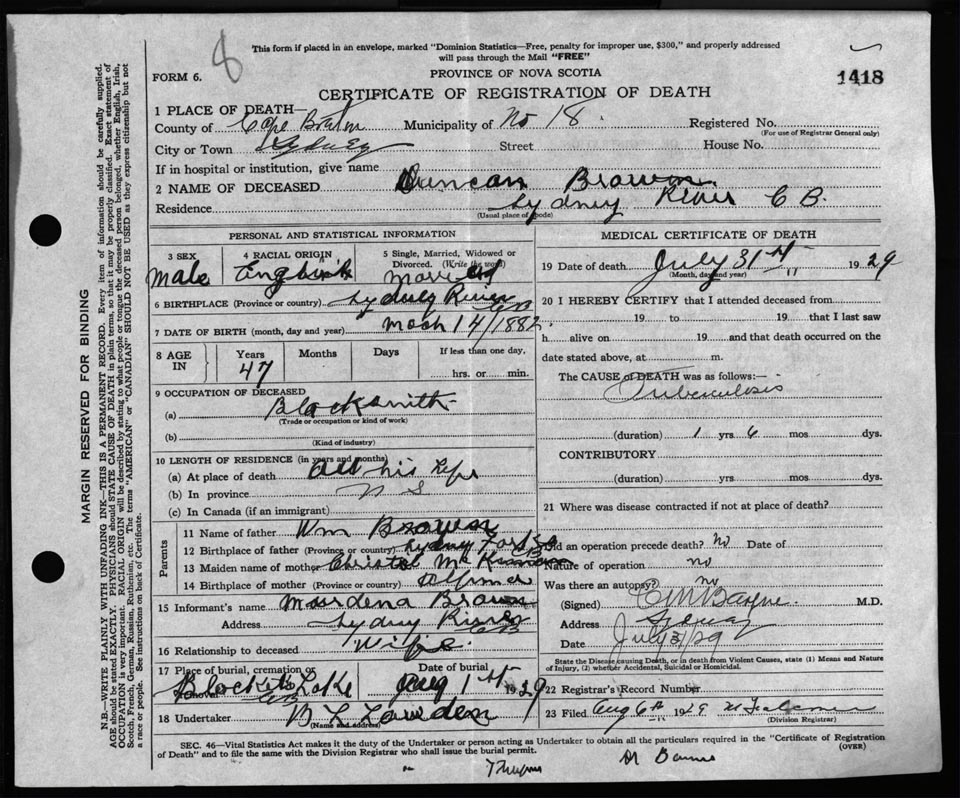 8
This form if placed in an envelope, marked "Dominion Statistics—Free, penalty for improper use, $300," and properly addressed
will pass through the Mail "FREE"
FORM 6.
PROVINCE OF NOVA SCOTIA
1418
CERTIFICATE OF REGISTRATION OF DEATH
1 PLACE OF DEATH—
County of Cape Breton Municipality of No 18. Registered No.
(For use of Registrar General only)
City or Town Sydney Street House No.
If in hospital or institution, give name
2 NAME OF DECEASED Duncan Brown
Residence Sydney River C B.
(Usual place of abode)
PERSONAL AND STATISTICAL INFORMATION
3 SEX Male
4 RACIAL ORIGIN
5 Single, Married, Widowed or Divorced. (Write the word) Married
6 BIRTHPLACE (Province or country) Sydney River CB
7 DATE OF BIRTH (month, day and year) Mach 14/1882.
8 AGE IN Years 47 Months Days If less than one day, hrs. or min.
9 OCCUPATION OF DECEASED
(a) Blacksmith
(Trade or occupation or kind of work)
(b)
(Kind of industry)
10 LENGTH OF RESIDENCE (in years and months)
(a) At place of death All his Life
(b) In province N S
(c) In Canada (if an immigrant)
Parents
11 Name of father Wm Brown
12 Birthplace of father (Province or country) Sydney
13 Maiden name of mother Christal
14 Birthplace of mother (Province or country)
15 Informant's name Murdena Brown
Address Sydney River CB
16 Relationship to deceased Wife.
17 Place of burial, cremation or removal Lake
Date of burial Aug 1st 1929
18 Undertaker
(Name and address)
MEDICAL CERTIFICATE OF DEATH
19 Date of death July 31st 1929
(Month, day and year)
20 I HEREBY CERTIFY that I attended deceased from
19 to 19 that I last saw
h alive on 19 and that death occurred on the
date stated above, at m.
The CAUSE of DEATH was as follows:—
Tuberculosis
(duration) 1 yrs 6 mos dys.
CONTRIBUTORY
(duration) yrs. mos. dys.
21 Where was disease contracted if not at place of death?
Did an operation precede death? No Date of
Nature of operation no
Was there an autopsy? no
(Signed) M.D.
Address Sydney
Date July 31/29
State the Disease causing Death, or in death from Violent Causes, state (1) Means and Nature
of Injury, (2) whether Accidental, Suicidal or Homicidal.
22 Registrar's Record Number
23 Filed Aug 6th 1929
(Division Registrar)
SEC. 46—Vital Statistics Act makes it the duty of the Undertaker or person acting as Undertaker to obtain all the particulars required in the "Certificate of Registration
of Death" and to file the same with the Division Registrar who shall issue the burial permit.
(OVER)
MARGIN RESERVED FOR BINDING
N.B.—WRITE PLAINLY WITH UNFADING INK—THIS IS A PERMANENT RECORD. Every item of information should be carefully supplied.
AGE should be stated EXACTLY. PHYSICIANS should STATE CAUSE OF DEATH in plain terms, so that it may be properly classified. Exact statement of
OCCUPATION is very important. RACIAL ORIGIN will be described by stating to what people or tongue the deceased person belonged, whether English, Irish,
Scotch, French, German, Russian, Ruthenian, etc. The terms "AMERICAN" or "CANADIAN" SHOULD NOT BE USED as they express citizenship but not
a race or people. See instructions on back of Certificate.